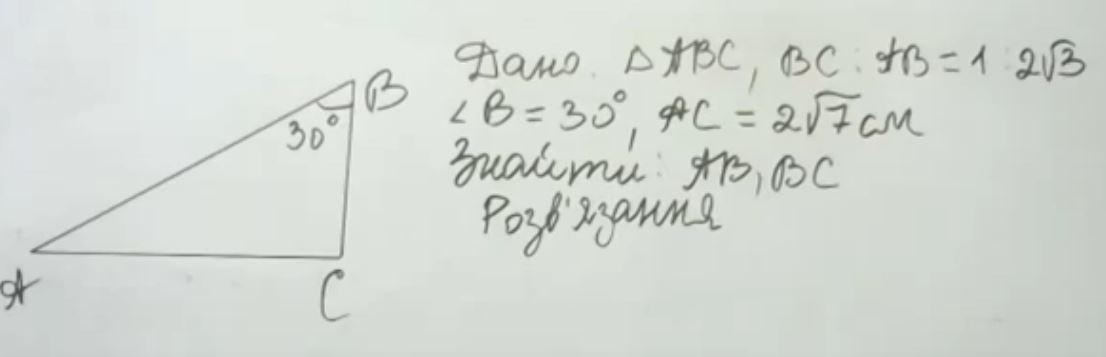 Дано. △ABC, BC : AB = 1 : 2√3
∠B = 30°, AC = 2√7 см
Знайти: AB, BC
Розв'язання
B
30°
A
C